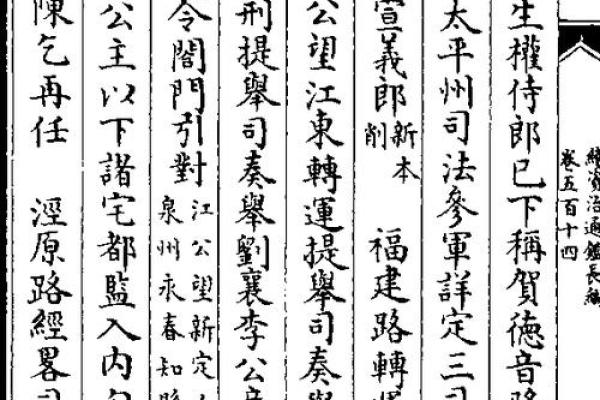 續資治通鑑長編
卷五百十四
生權侍郎已下稱賀德音降
太平州司法參軍詳定三司
宣義郎新本削 福建路轉運
公望江東轉運提舉司奏舉
刑提舉司奏舉劉襄李公彥
令閤門引對江公望新定
泉州永春知縣
公主以下諸宅都監入內
陳乞再任 涇原路經畧司